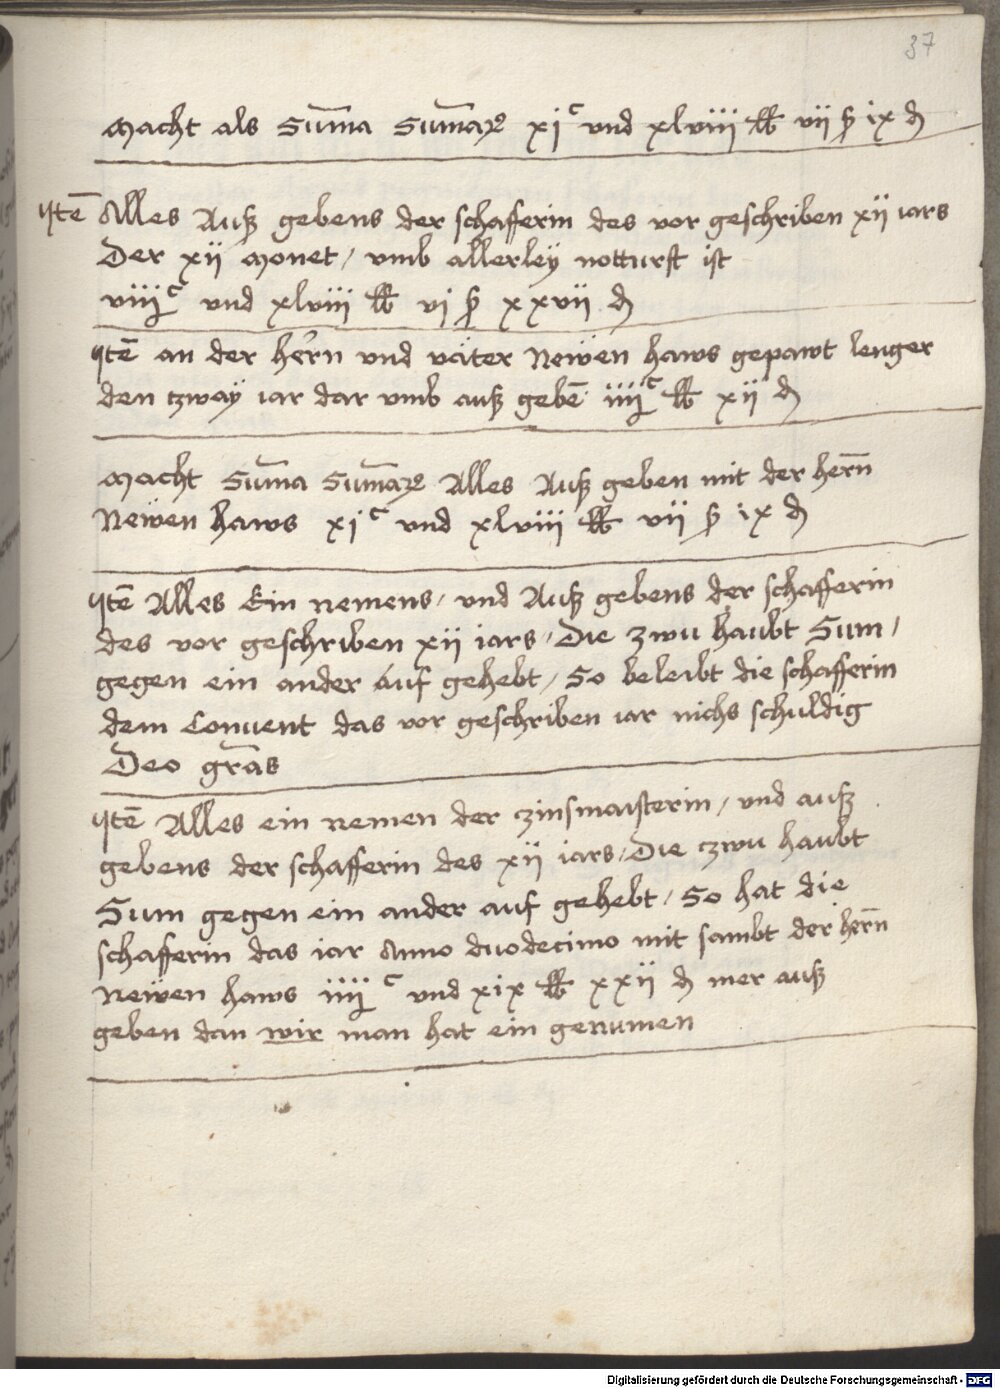 37
Macht als Sum̅a Sum̅aꝝ xjᶜ und xlviii ℔ vii ß ix ₰
Ite͂ Alles Auß gebens der schafferin des vor geschriben xij iars
Der xij Monet / vmb allerley notturft ist
viiiᶜ vnd xlviii ℔ vj ß xxvii ₰
Ite͂ an der hern̅ vnd väter Newen haws gepawt lenger
den zway iar dar vmb auß gebe͂ iiijᶜ ℔ xij ₰
Macht Sum̅a Sum̅aꝝ Alles Auß geben mit der hern̅
Newen haws xjᶜ vnd xlviii ℔ vii ß ix ₰
Ite͂ Alles Ein nemens / vnd Auß gebens der schafferin
des vor geschriben xij iars / Die zwu haubt Sum /
gegen ein ander Auf gehebt / So beleibt die schafferin
dem Conuent das vor geschriben iar nichs schuldig
Deo gra͂s
Ite͂ Alles ein nemen der zinsmaisterin / vnd auß
gebens der schafferin des xij iars / Die zwu haubt
Sum gegen ein ander auf gehebt / So hat die
schafferin das iar Anno duodecimo mit sambt der hern̅
Newen haws iiijᶜ vnd xix ℔ xxij ₰ mer auß
geben dan wir man hat ein genumen
Digitalisierung gefördert durch die Deutsche Forschungsgemeinschaft - DFG